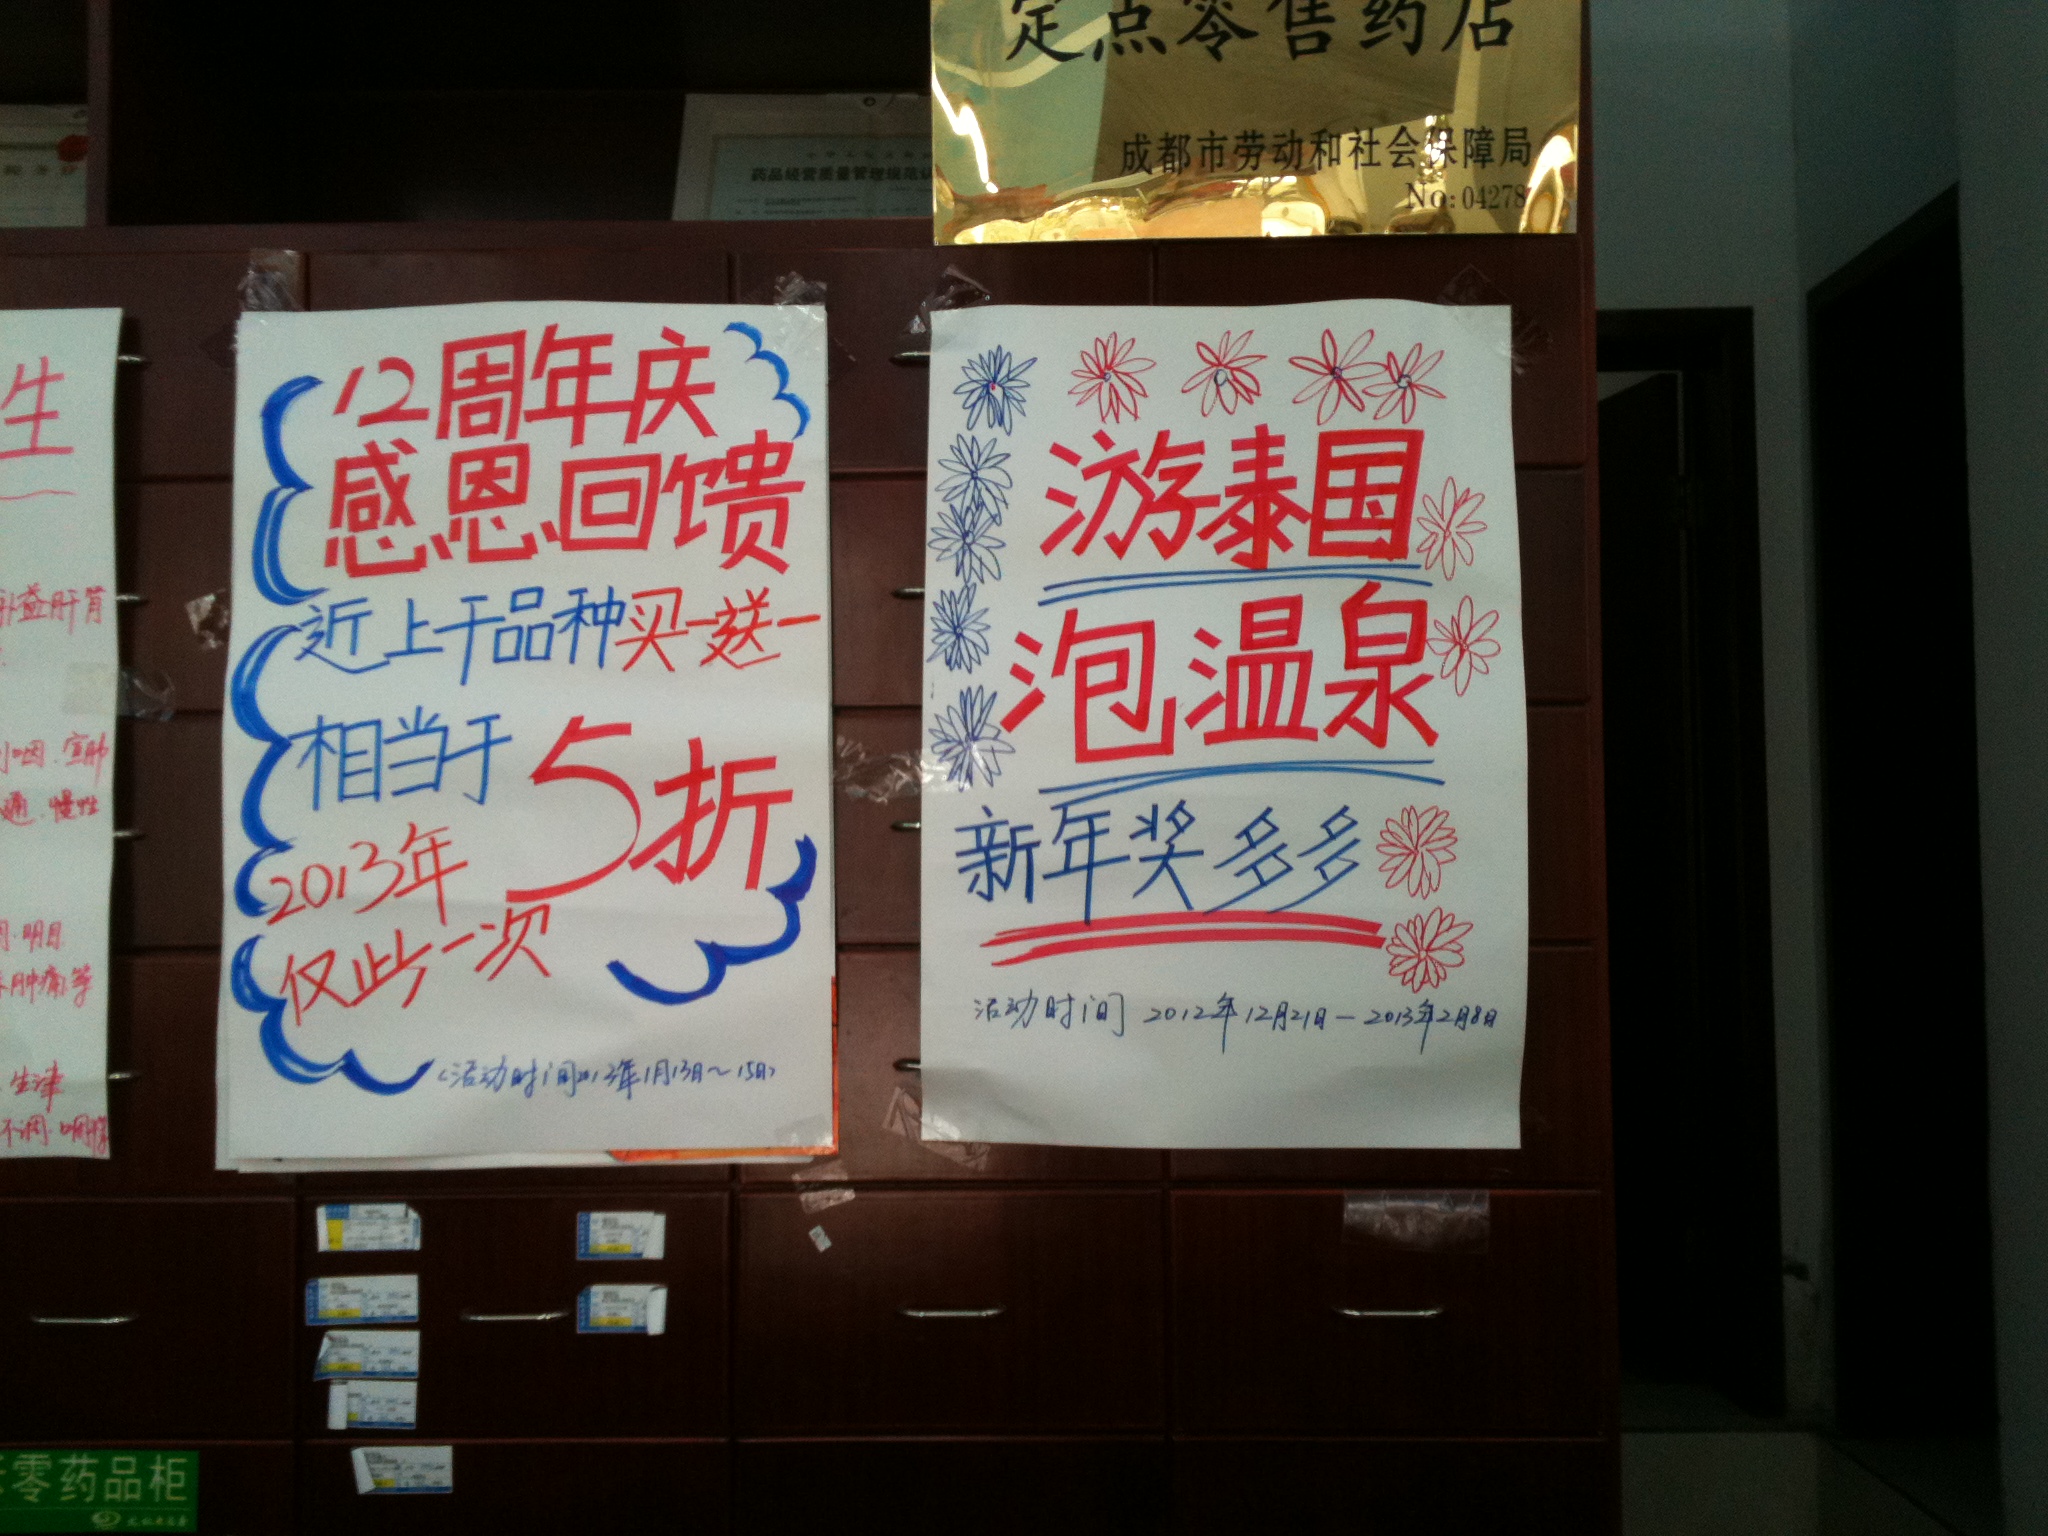 定点零售药店
成都市劳动和社会保障局
No:04278
药品经营质量管理规范认
生
补益肝肾
咽.宣肺
通.慢性
明目
肿痛等
生津
不调.
12周年庆
感恩回馈
近上千品种买一送一
相当于5折
2013年
仅此一次
(活动时间2013年1月13日～15日)
游泰国
泡温泉
新年奖多多
活动时间 2012年12月21日—2013年2月8日
零药品柜